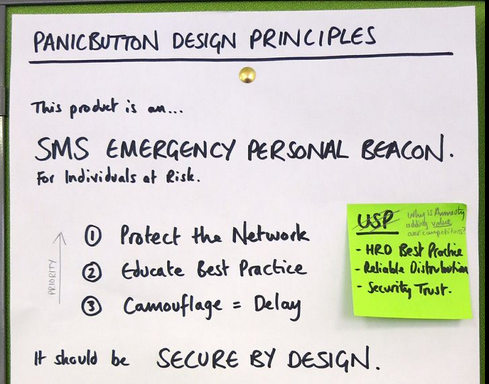 PANICBUTTON DESIGN PRINCIPLES
This product is an...
SMS EMERGENCY PERSONAL BEACON.
For Individuals at Risk.
PRIORITY
① Protect the Network
② Educate Best Practice
③ Camouflage = Delay
USP
Why is Amnesty
adding value
over competitors?
- HRD Best Practice
- Reliable Distribution
- Security Trust.
It should be SECURE BY DESIGN.